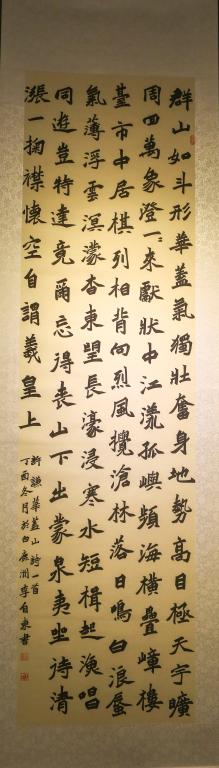 群山如斗形華蓋氣獨壯奮身地勢高目極天宇曠
周四萬象澄一一來獻狀中江漾孤嶼頻海橫疊嶂樓
臺市中居棋列相背向烈風攪滄林落日鳴白浪蜃
氣薄浮雲溟濛杳東望長濠浸寒水短楫起漁唱
同遊豈特達竟爾忘得喪山下出蒙泉夷坐待清
漲一掬襟懷空自謂羲皇上
許謙華蓋山詩一首
丁酉冬月於白鹿洲李自東書